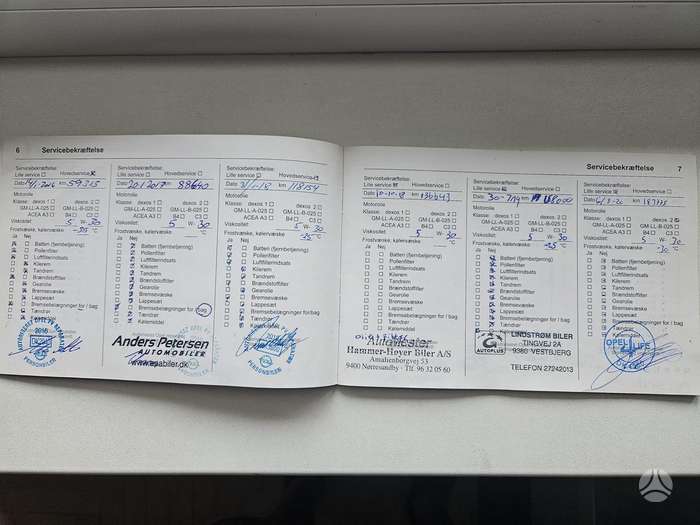 6 Servicebekræftelse
Servicebekræftelse:
Lille service Hovedservice
Dato km 59315
Motorolie
Klasse: dexos 1 dexos 2
GM-LL-A-025 GM-LL-B-025
ACEA A3 B4 C3
Viskositet: 5 W- 30
Frostvæske, kølervæske °C
Ja Nej
Batteri (fjernbetjening)
Pollenfilter
Luftfilterindsats
Kilerem
Tandrem
Brændstoffilter
Gearolie
Bremsevæske
Lappesæt
Bremsebelægninger for / bag
Tændrør
2016
Servicebekræftelse:
Lille service Hovedservice
Dato 20.1.2017 km 88640
Motorolie
Klasse: dexos 1 dexos 2
GM-LL-A-025 GM-LL-B-025
ACEA A3 B4 C3
Viskositet: 5 W- 30
Frostvæske, kølervæske °C
Ja Nej
Batteri (fjernbetjening)
Pollenfilter
Luftfilterindsats
Kilerem
Tandrem
Brændstoffilter
Bremsevæske
Lappesæt
Bremsebelægninger for / bag
Tændrør
Kølemiddel
Anders Petersen
AUTOMOBILER
www.apabiler.dk
Servicebekræftelse:
Lille service Hovedservice
Dato km 118154
Motorolie
Klasse: dexos 1 dexos 2
GM-LL-A-025 GM-LL-B-025
ACEA A3 B4 C3
Viskositet: W- 30
Frostvæske, kølervæske °C
Ja Nej
Batteri (fjernbetjening)
Pollenfilter
Luftfilterindsats
Kilerem
Tandrem
Brændstoffilter
Gearolie
Bremsevæske
Lappesæt
Bremsebelægninger for/bag
Tændrør
Kølemiddel
Servicebekræftelse 7
Servicebekræftelse:
Lille service Hovedservice
Dato km
Motorolie
Klasse: dexos 1 dexos 2
GM-LL-A-025 GM-LL-B-025
ACEA A3 B4 C3
Viskositet: 5 W- 30
Frostvæske, kølervæske °C
Ja Nej
Batteri (fjernbetjening)
Pollenfilter
Luftfilterindsats
Kilerem
Tandrem
Brændstoffilter
Gearolie
Bremsevæske
Lappesæt
Bremsebelægninger for / bag
Tændrør
Kølemiddel
Automester
Hammer-Højer Biler A/S
9400 Nørresundby · Tlf. 96 32 05 60
Servicebekræftelse:
Lille service Hovedservice
Dato km
Motorolie
Klasse: dexos 1 dexos 2
GM-LL-A-025 GM-LL-B-025
ACEA A3 B4 C3
Viskositet: 5 W- 30
Frostvæske, kølervæske °C
Ja Nej
Batteri (fjernbetjening)
Pollenfilter
Luftfilterindsats
Kilerem
Tandrem
Brændstoffilter
Gearolie
Bremsevæske
Lappesæt
Bremsebelægninger for / bag
Tændrør
AUTOPLUS
LINDSTRØM BILER
TINGVEJ 2A
9380 VESTBJERG
TELEFON 27242013
Servicebekræftelse:
Lille service Hovedservice
Dato km
Motorolie
Klasse: dexos 1 dexos 2
GM-LL-A-025 GM-LL-B-025
ACEA A3 B4 C3
Viskositet: 5 W- 30
Frostvæske, kølervæske -30 °C
Ja Nej
Batteri (fjernbetjening)
Pollenfilter
Luftfilterindsats
Kilerem
Tandrem
Brændstoffilter
Gearolie
Bremsevæske
Lappesæt
Bremsebelægninger for / bag
Tændrør
OPEL 4 LIFE